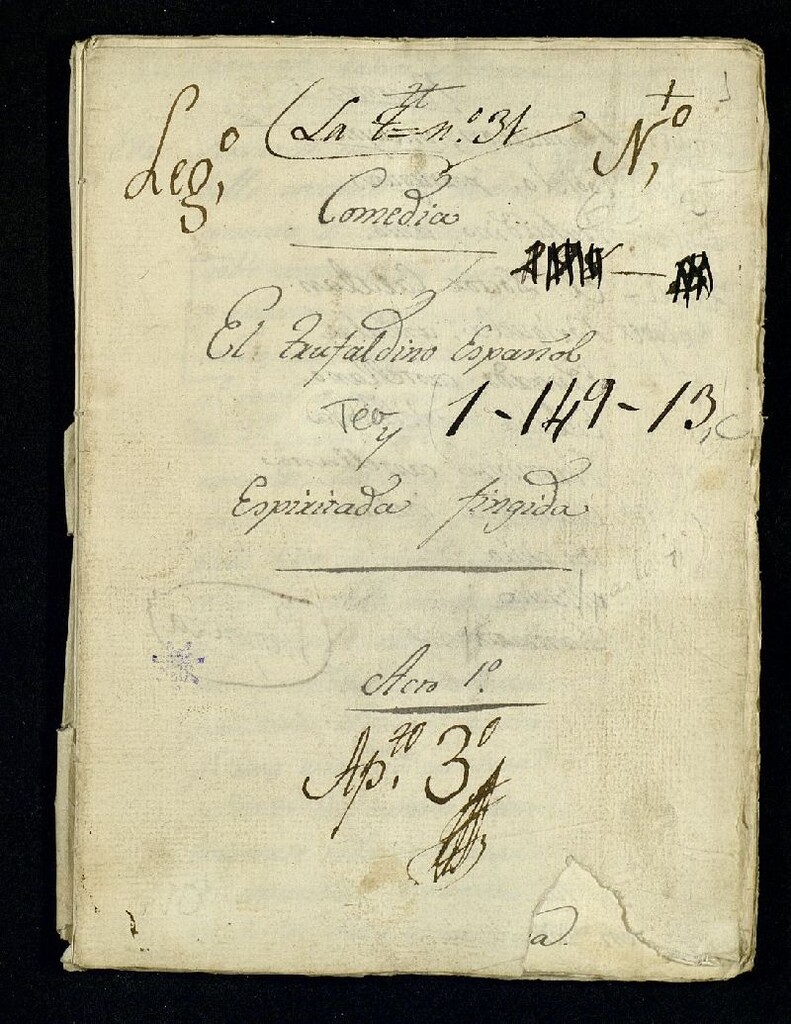 Leg,º
La t = n.º 31
N,º
Comedia
El Trufaldino Español
Tea
1-149-13,
y
Espiritada fingida
Acto 1.º
Ap.to 3.º
a.